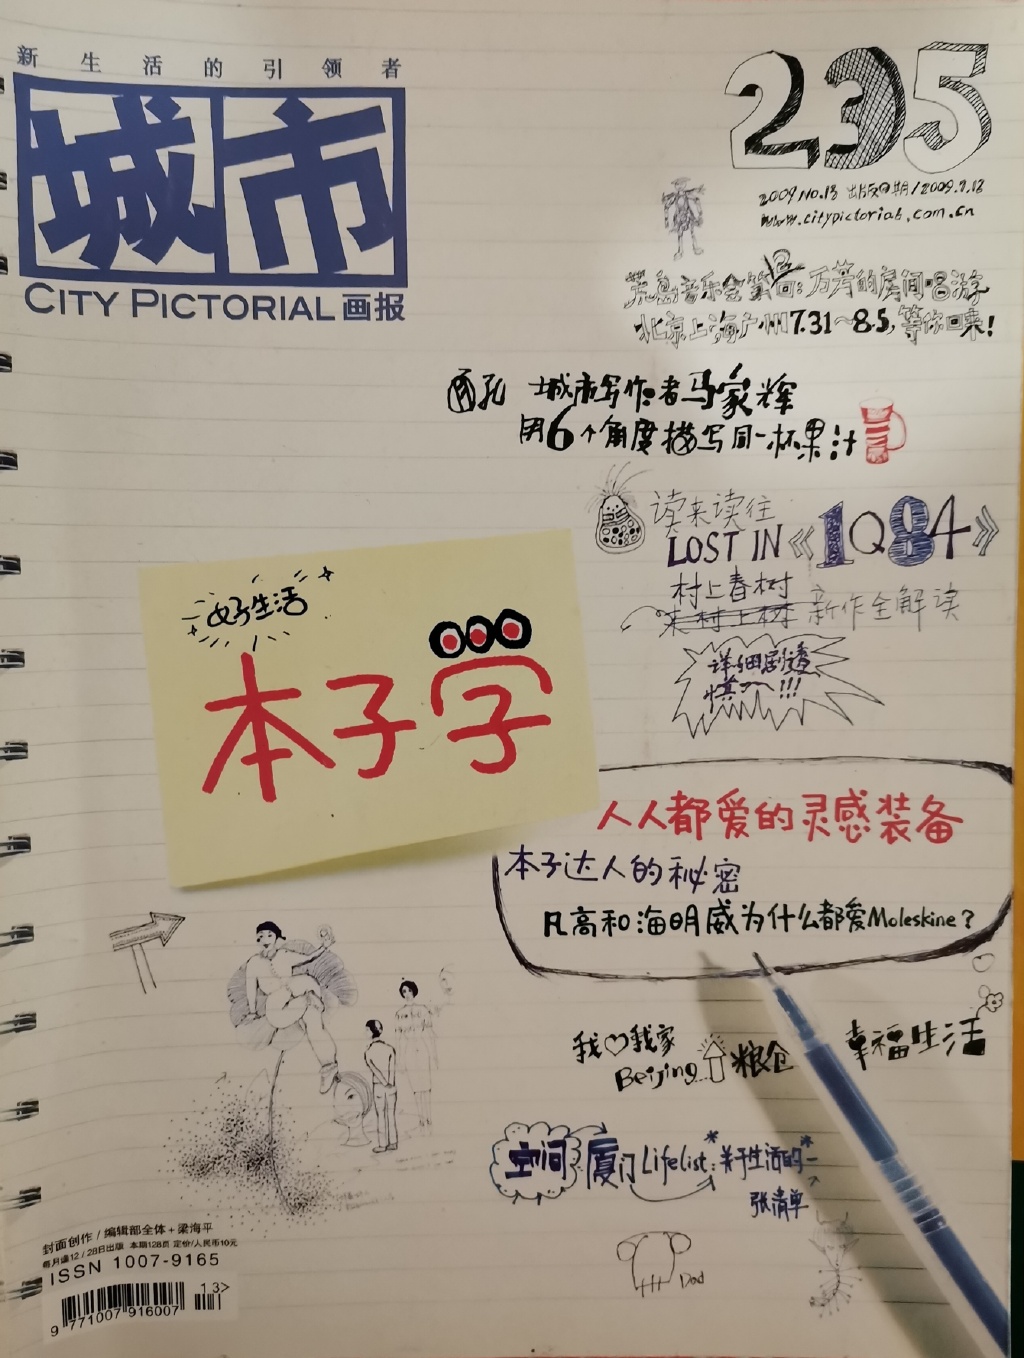 新生活的引领者
城市
CITY PICTORIAL 画报
235
2009 NO.13 出版日期/2009.7.13
www.citypictorial.com.cn
荒岛音乐会第2回:万芳的房间唱游
北京上海广州7.31~8.5,等你回来!
面孔 城市写作者马家辉
用6个角度描写同一杯果汁
读来读往
LOST IN《1Q84》
村上春树
来村上树 新作全解读
详细剧透
慎入~!!!
好生活
本子学
人人都爱的灵感装备
本子达人的秘密
凡高和海明威为什么都爱Moleskine?
我♡我家
Beijing 粮仓
幸福生活
空间 厦门Lifelist:关于生活的一
张清单
Dod
封面创作/编辑部全体+梁海平
每月逢12/28日出版 本期128页 定价/人民币10元
ISSN 1007-9165
13>
9 771007 916007